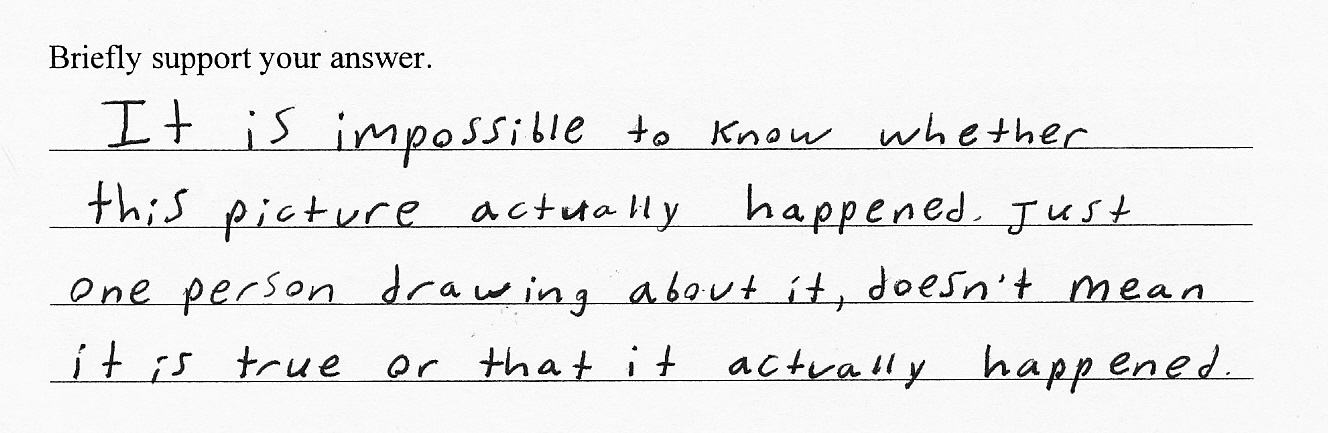 Briefly support your answer.
It is impossible to know whether
this picture actually happened. Just
one person drawing about it, doesn't mean
it is true or that it actually happened.